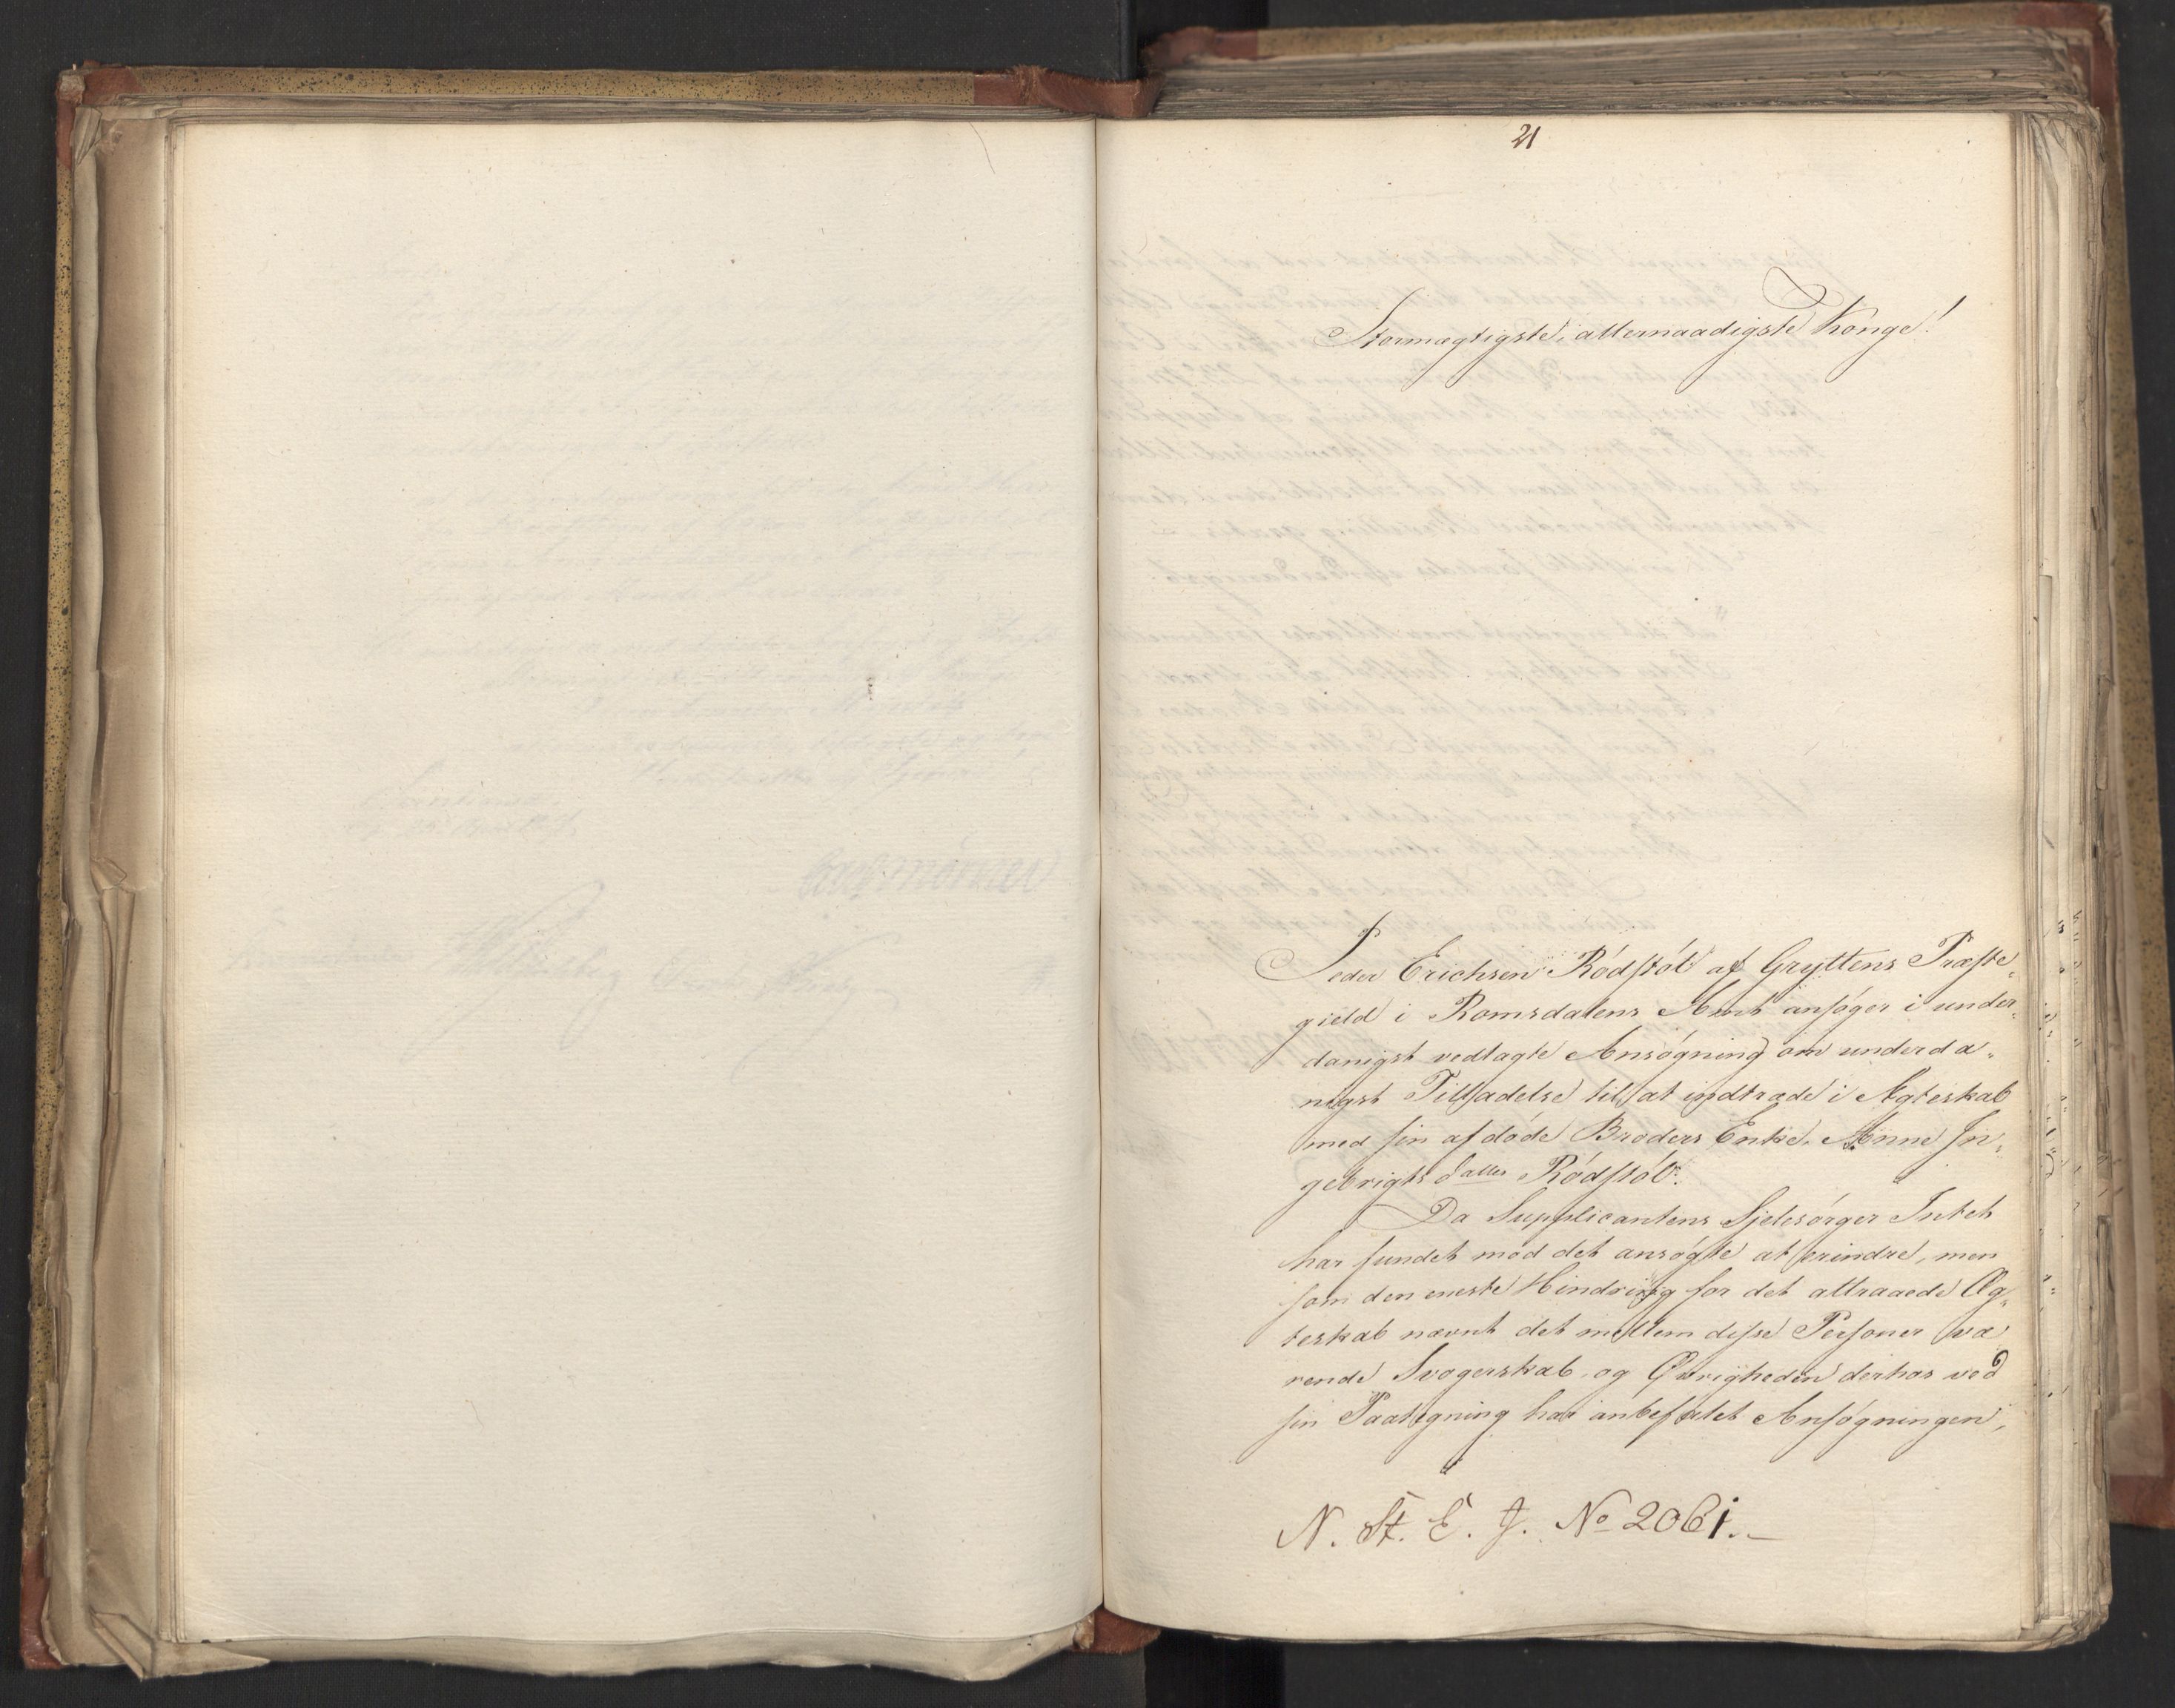 21
Stormægtigste, allernaadigste Konge!
Peder Erichsen Rødstøl af Gryttens Præste-
gield i Romsdalens Amt ansøger i under-
danigst vedlagte Ansøgning om underda-
nigst Tilladelse til at indtræde i Ægteskab
med sin afdøde Broders Enke, Anne In-
gebrigtsdatter Rødstøl.
Da Supplicantens Sjelesørger Intet
har fundet mod det ansøgte at erindre, men
som den eneste Hindring for det attraaede Æg-
teskab nævnt det mellem disse Personer væ
rende Svogerskab, og Øvrigheden derhos ved
sin Paategning har anbefalet Ansøgningen,
N. St. E. J. No 2061.